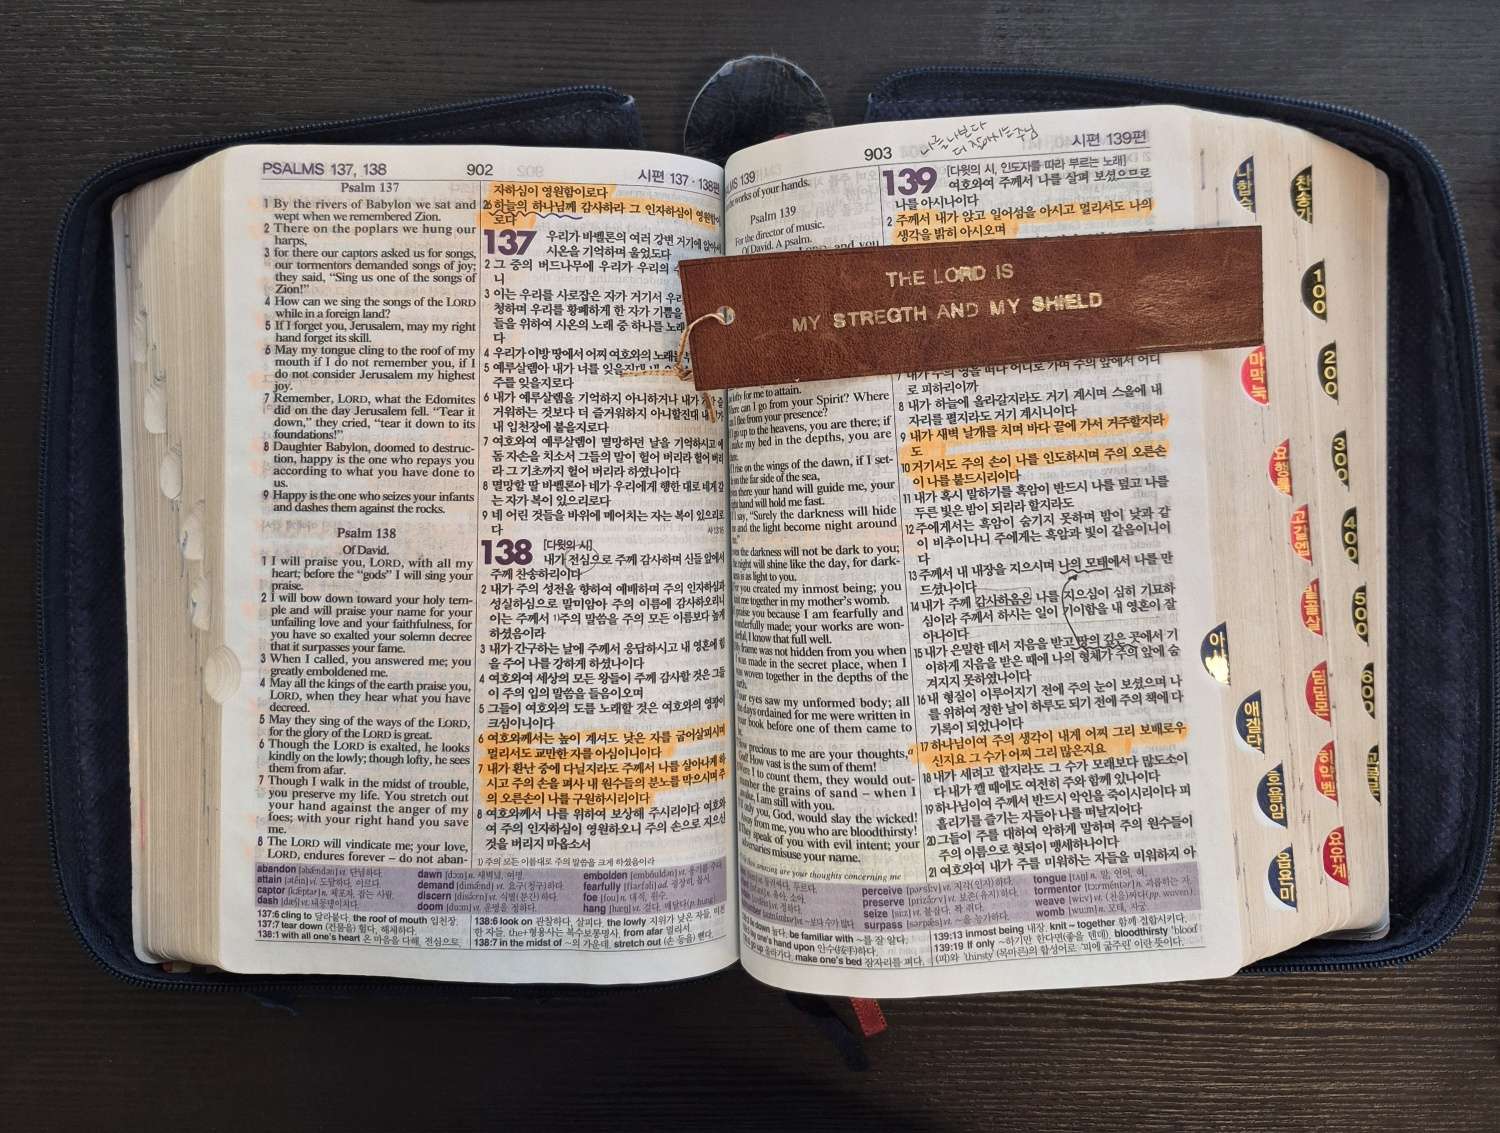 PSALMS 137, 138
902
시편 137 · 138편
Psalm 137
1 By the rivers of Babylon we sat and
wept when we remembered Zion.
2 There on the poplars we hung our
harps,
3 for there our captors asked us for songs,
our tormentors demanded songs of joy;
they said, “Sing us one of the songs of
Zion!”
4 How can we sing the songs of the LORD
while in a foreign land?
5 If I forget you, Jerusalem, may my right
hand forget its skill.
6 May my tongue cling to the roof of my
mouth if I do not remember you, if I
do not consider Jerusalem my highest
joy.
7 Remember, LORD, what the Edomites
did on the day Jerusalem fell. “Tear it
down,” they cried, “tear it down to its
foundations!”
8 Daughter Babylon, doomed to destruc-
tion, happy is the one who repays you
according to what you have done to
us.
9 Happy is the one who seizes your infants
and dashes them against the rocks.
Psalm 138
Of David.
1 I will praise you, LORD, with all my
heart; before the “gods” I will sing your
praise.
2 I will bow down toward your holy tem-
ple and will praise your name for your
unfailing love and your faithfulness, for
you have so exalted your solemn decree
that it surpasses your fame.
3 When I called, you answered me; you
greatly emboldened me.
4 May all the kings of the earth praise you,
LORD, when they hear what you have
decreed.
5 May they sing of the ways of the LORD,
for the glory of the LORD is great.
6 Though the LORD is exalted, he looks
kindly on the lowly; though lofty, he sees
them from afar.
7 Though I walk in the midst of trouble,
you preserve my life. You stretch out
your hand against the anger of my
foes; with your right hand you save
me.
8 The LORD will vindicate me; your love,
LORD, endures forever – do not aban-
자하심이 영원함이로다
26 하늘의 하나님께 감사하라 그 인자하심이 영원함이
로다
137 우리가 바벨론의 여러 강변 거기에 앉아서
시온을 기억하며 울었도다
2 그 중의 버드나무에 우리가 우리의
니
3 이는 우리를 사로잡은 자가 거기서
청하며 우리를 황폐하게 한 자가 기쁨을
들을 위하여 시온의 노래 중 하나를
다
4 우리가 이방 땅에서 어찌 여호와의 노래를
5 예루살렘아 내가 너를 잊을진대 내
주를 잊을지로다
6 내가 예루살렘을 기억하지 아니하거나 내가
거워하는 것보다 더 즐거워하지 아니할진대
내 입천장에 붙을지로다
7 여호와여 예루살렘이 멸망하던 날을 기억하시고 에
돔 자손을 치소서 그들의 말이 헐어 버리라 헐어 버리
라 그 기초까지 헐어 버리라 하였나이다
8 멸망할 딸 바벨론아 네가 우리에게 행한 대로 네게 갚
는 자가 복이 있으리로다
9 네 어린 것들을 바위에 메어치는 자는 복이 있으리로
다
138 [다윗의 시]
내가 전심으로 주께 감사하며 신들 앞에서
주께 찬송하리이다
2 내가 주의 성전을 향하여 예배하며 주의 인자하심과
성실하심으로 말미암아 주의 이름에 감사하오리니
이는 주께서 1)주의 말씀을 주의 모든 이름보다 높게
하셨음이라
3 내가 간구하는 날에 주께서 응답하시고 내 영혼에 힘
을 주어 나를 강하게 하셨나이다
4 여호와여 세상의 모든 왕들이 주께 감사할 것은 그들
이 주의 입의 말씀을 들음이오며
5 그들이 여호와의 도를 노래할 것은 여호와의 영광이
크심이니이다
6 여호와께서는 높이 계셔도 낮은 자를 굽어살피시며
멀리서도 교만한 자를 아심이니이다
7 내가 환난 중에 다닐지라도 주께서 나를 살아나게 하
시고 주의 손을 펴사 내 원수들의 분노를 막으시며 주
의 오른손이 나를 구원하시리이다
8 여호와께서 나를 위하여 보상해 주시리이다 여호와
여 주의 인자하심이 영원하오니 주의 손으로 지으신
것을 버리지 마옵소서
1) 주의 모든 이름대로 주의 말씀을 크게 하셨음이라
abandon
attain
captor
dash
dawn
demand
discern
doom
embolden
fearfully
foe
hang
137:6 cling to 달라붙다. the roof of mouth 입천장.
137:7 tear down (건물을) 헐다, 해체하다.
138:1 with all one's heart 온 마음을 다해, 전심으로.
138:6 look on 관찰하다, 살피다. the lowly 지위가 낮은 자들,
the+형용사는 복수보통명사. from afar 멀리서
138:7 in the midst of ~의 가운데. stretch out (손 등을) 뻗다.
903
나를 나보다
더 잘아시는주님
시편 139편
139
works of your hands.
Psalm 139
For the director of music.
Of David. A psalm.
THE LORD IS
MY STREGTH AND MY SHIELD
for me to attain.
can I go from your Spirit? Where
I flee from your presence?
go up to the heavens, you are there; if
make my bed in the depths, you are
rise on the wings of the dawn, if I set-
on the far side of the sea,
there your hand will guide me, your
hand will hold me fast.
say, “Surely the darkness will hide
and the light become night around
the darkness will not be dark to you;
night will shine like the day, for dark-
is as light to you.
you created my inmost being; you
me together in my mother's womb.
praise you because I am fearfully and
wonderfully made; your works are won-
I know that full well.
frame was not hidden from you when
was made in the secret place, when I
woven together in the depths of the
eyes saw my unformed body; all
days ordained for me were written in
your book before one of them came to
precious to me are your thoughts,
How vast is the sum of them!
I to count them, they would out-
the grains of sand – when I
I am still with you.
you, God, would slay the wicked!
Away from me, you who are bloodthirsty!
speak of you with evil intent; your
adversaries misuse your name.
amazing are your thoughts concerning me
139 [다윗의 시, 인도자를 따라 부르는 노래]
여호와여 주께서 나를 살펴 보셨으므로
나를 아시나이다
2 주께서 내가 앉고 일어섬을 아시고 멀리서도 나의
생각을 밝히 아시오며
로 피하리이까
8 내가 하늘에 올라갈지라도 거기 계시며 스올에 내
자리를 펼지라도 거기 계시니이다
9 내가 새벽 날개를 치며 바다 끝에 가서 거주할지라
도
10 거기서도 주의 손이 나를 인도하시며 주의 오른손
이 나를 붙드시리이다
11 내가 혹시 말하기를 흑암이 반드시 나를 덮고 나를
두른 빛은 밤이 되리라 할지라도
12 주에게서는 흑암이 숨기지 못하며 밤이 낮과 같
이 비추이나니 주에게는 흑암과 빛이 같음이니이
다
13 주께서 내 내장을 지으시며 나의 모태에서 나를 만
드셨나이다
14 내가 주께 감사하옴은 나를 지으심이 심히 기묘하
심이라 주께서 하시는 일이 기이함을 내 영혼이 잘
아나이다
15 내가 은밀한 데서 지음을 받고 땅의 깊은 곳에서 기
이하게 지음을 받은 때에 나의 형체가 주의 앞에 숨
겨지지 못하였나이다
16 내 형질이 이루어지기 전에 주의 눈이 보셨으며 나
를 위하여 정한 날이 하루도 되기 전에 주의 책에 다
기록이 되었나이다
17 하나님이여 주의 생각이 내게 어찌 그리 보배로우
신지요 그 수가 어찌 그리 많은지요
18 내가 세려고 할지라도 그 수가 모래보다 많도소이
다 내가 깰 때에도 여전히 주와 함께 있나이다
19 하나님이여 주께서 반드시 악인을 죽이시리이다 피
흘리기를 즐기는 자들아 나를 떠날지어다
20 그들이 주를 대하여 악하게 말하며 주의 원수들이
주의 이름으로 헛되이 맹세하나이다
21 여호와여 내가 주를 미워하는 자들을 미워하지 아
perceive
preserve
seize
surpass
tongue
tormentor
weave
womb
be familiar with ~를 잘 알다.
one's hand upon 안수(按手)하다.
make one's bed 잠자리를 펴다.
139:13 inmost being 내장. knit ~ together 함께 접합시키다.
139:19 If only ~하기만 한다면(좋을 텐데). bloodthirsty 'blood'
(피)와 'thirsty'(목마른)의 합성어로 '피에 굶주린' 이란 뜻이다.
나합습
찬송가
100
마막눅
200
요행롬
300
고갈엡
400
빌골살
500
아
딤딛몬
600
애겔단
히약벧
호욜암
요유계
옵욘미